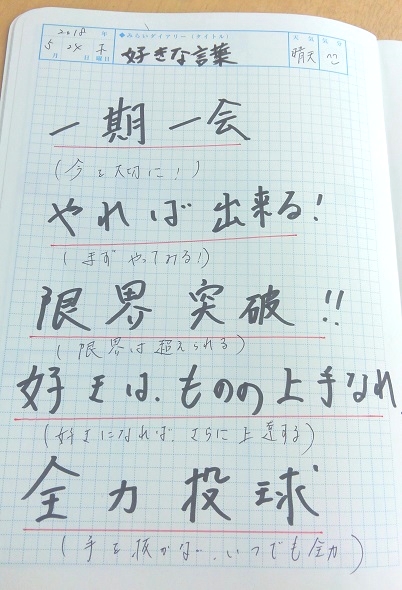 2018 年 ◆みらいダイアリー(タイトル) 天気 気分
5 月 24 日 木 曜日 好きな言葉 晴天
一期一会
(今を大切に!)
やれば出来る!
(まずやってみる!)
限界突破!!
(限界は超えられる)
好きは、ものの上手なれ
(好きになれば、さらに上達する)
全力投球
(手を抜かない、いつでも全力)